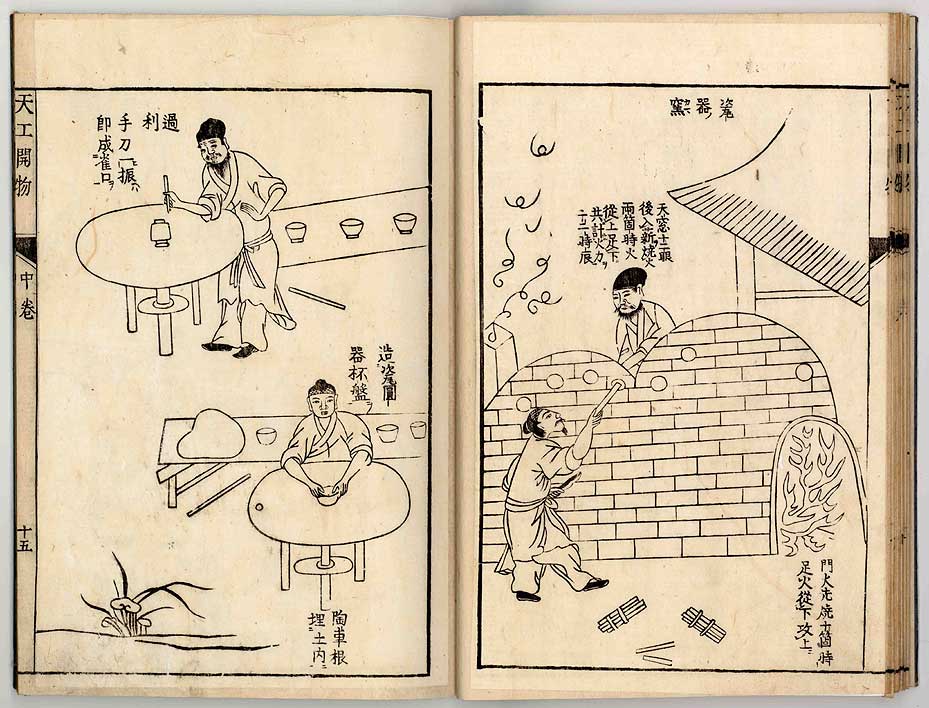 甆器窯
天窓十二眼
後入薪燒火
兩箇時火
從上足下
共計火力
十二時辰
門火先燒十箇時
足火從下攻上
過
利
手刀一振
即成雀口
造瓷圓
器杯盤
陶車根
埋土内
天工開物
中卷
十五